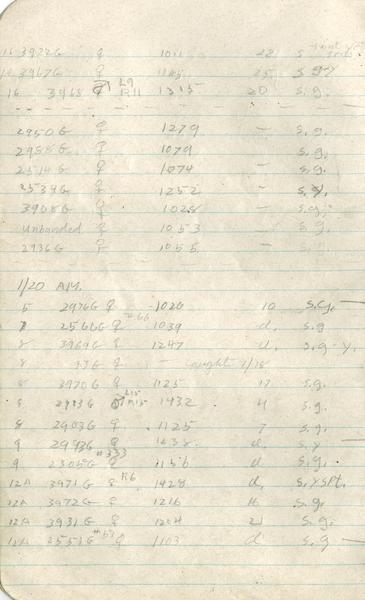 16 3972G ♀ 1011 22 S
3967G ♀ 1145 25 S g-y
16 3968 ♂ L9 R11 1315 20 S.g.
2950G ♀ 1279 – S.g.
2988G ♀ 1079 – S.g.
2514G ♀ 1074 – S.g.
2539G ♀ 1252 – S.y.
3908G ♀ 1028 – S.g.
Unbanded ♀ 1053 – S.g.
2936G ♀ 1055 –
1/20 A.M.
5 2976G ♀ 1020 10 S.g.
2566G ♀ #66 1039 d. S.g
8 3969G ♀ 1247 d. S.g-y.
8 93G ♀ – Caught 1/18
8 3970G ♀ 1125 17 S.g.
8 2983G ♂ L15 R15 1432 4 S.g.
8 2903G ♀ 1125 7 S.g.
9 2993G ♀ 1238 d. S.y
9 2305G #333 ♀ 1156 d S.g.
12A 3971G ♀ R6 1428 d, S.YSPt.
12A 3972G ♀ 1216 16 S.g.
12A 3931G ♀ 1204 21 S.g.
2551G ♀ 1103 d S.g